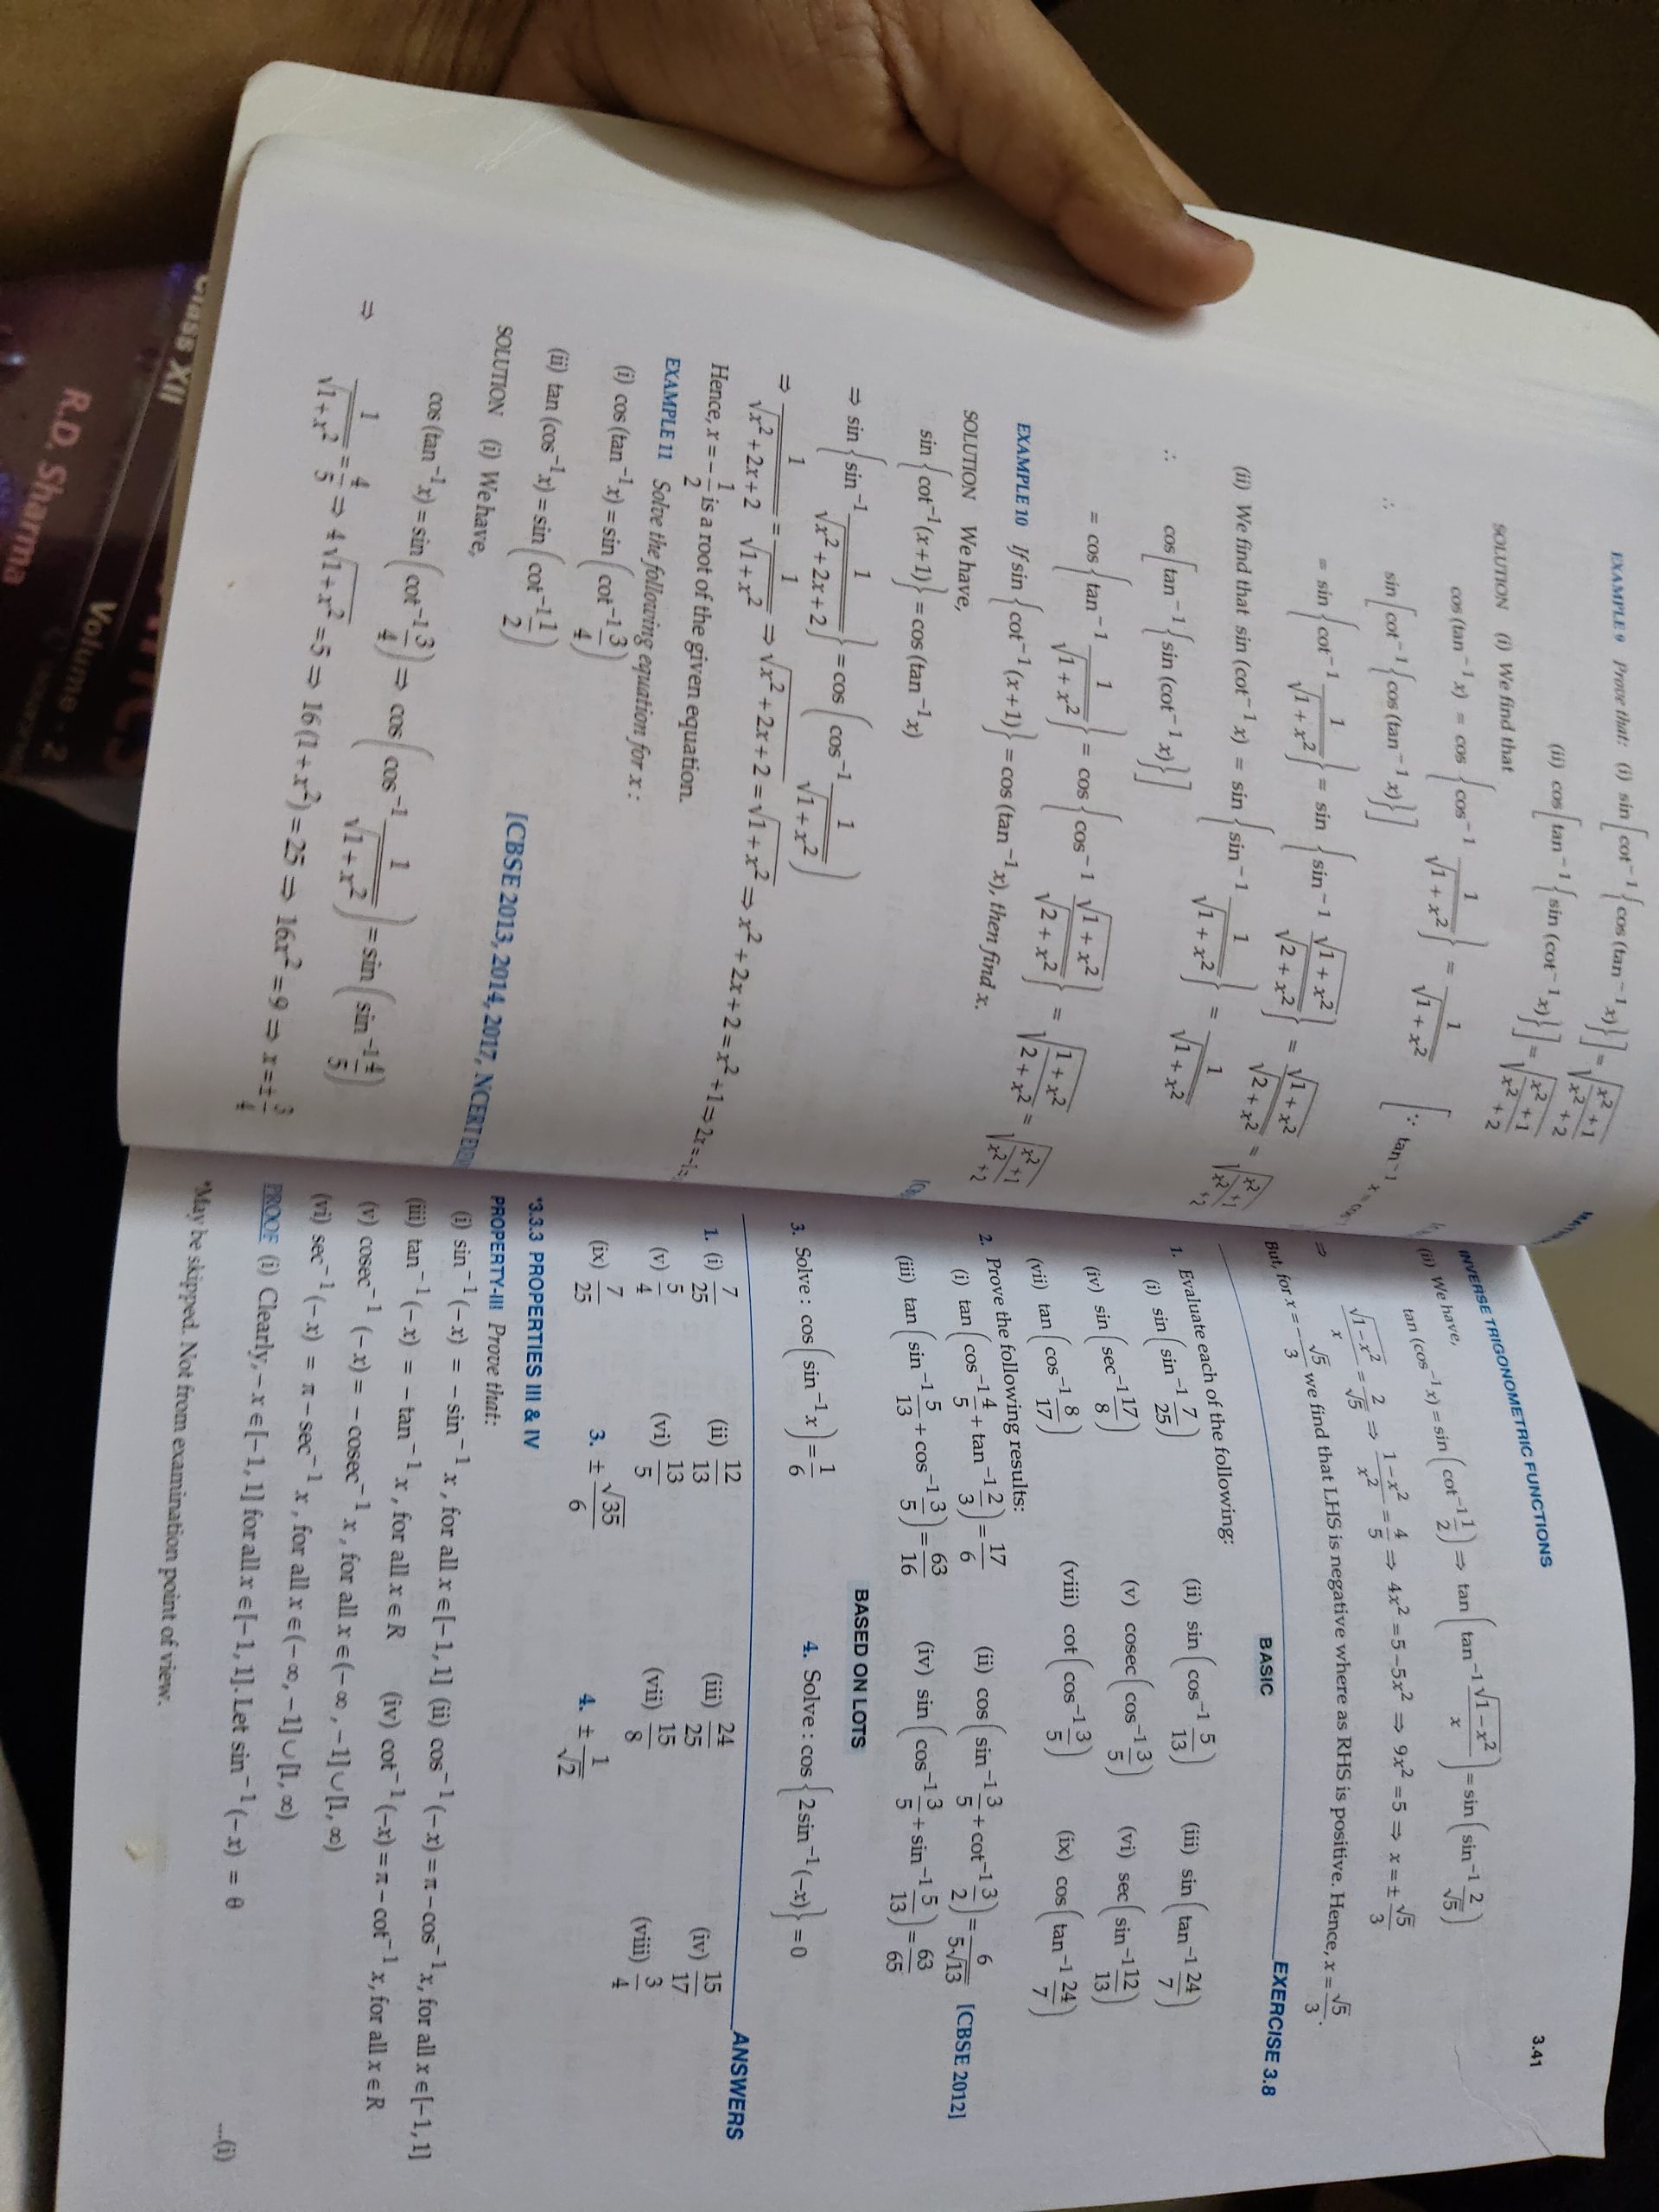 EXAMPLE 9 Prove that: (i) sin [cot⁻¹ {cos (tan⁻¹ x)}] = √((x² + 1)/(x² + 2))
(ii) cos [tan⁻¹ {sin (cot⁻¹ x)}] = √((x² + 1)/(x² + 2))
SOLUTION (i) We find that
cos (tan⁻¹ x) = cos {cos⁻¹ 1/√(1 + x²)} = 1/√(1 + x²) [∵ tan⁻¹ x =
∴ sin [cot⁻¹ {cos (tan⁻¹ x)}]
= sin {cot⁻¹ 1/√(1 + x²)} = sin {sin⁻¹ √(1 + x²)/√(2 + x²)} = √(1 + x²)/√(2 + x²) = √((x² + 1)/(x² + 2))
(ii) We find that sin (cot⁻¹ x) = sin {sin⁻¹ 1/√(1 + x²)} = 1/√(1 + x²)
∴ cos [tan⁻¹ {sin (cot⁻¹ x)}]
= cos {tan⁻¹ 1/√(1 + x²)} = cos {cos⁻¹ √(1 + x²)/√(2 + x²)} = √((1 + x²)/(2 + x²)) = √((x² + 1)/(x² + 2))
EXAMPLE 10 If sin {cot⁻¹ (x + 1)} = cos (tan⁻¹ x), then find x.
SOLUTION We have,
sin {cot⁻¹ (x + 1)} = cos (tan⁻¹ x)
⇒ sin {sin⁻¹ 1/√(x² + 2x + 2)} = cos (cos⁻¹ 1/√(1 + x²))
⇒ 1/√(x² + 2x + 2) = 1/√(1 + x²) ⇒ √(x² + 2x + 2) = √(1 + x²) ⇒ x² + 2x + 2 = x² + 1 ⇒ 2x = -1
Hence, x = -1/2 is a root of the given equation.
EXAMPLE 11 Solve the following equation for x :
(i) cos (tan⁻¹ x) = sin (cot⁻¹ 3/4)
(ii) tan (cos⁻¹ x) = sin (cot⁻¹ 1/2) [CBSE 2013, 2014, 2017, NCERT
SOLUTION (i) We have,
cos (tan⁻¹ x) = sin (cot⁻¹ 3/4) ⇒ cos (cos⁻¹ 1/√(1 + x²)) = sin (sin⁻¹ 4/5)
⇒ 1/√(1 + x²) = 4/5 ⇒ 4√(1 + x²) = 5 ⇒ 16 (1 + x²) = 25 ⇒ 16x² = 9 ⇒ x = ± 3/4
INVERSE TRIGONOMETRIC FUNCTIONS 3.41
(ii) We have,
tan (cos⁻¹ x) = sin (cot⁻¹ 1/2) ⇒ tan (tan⁻¹ √(1 - x²)/x) = sin (sin⁻¹ 2/√5)
⇒ √(1 - x²)/x = 2/√5 ⇒ (1 - x²)/x² = 4/5 ⇒ 4x² = 5 - 5x² ⇒ 9x² = 5 ⇒ x = ± √5/3
But, for x = -√5/3 we find that LHS is negative where as RHS is positive. Hence, x = √5/3.
EXERCISE 3.8
BASIC
1. Evaluate each of the following:
(i) sin (sin⁻¹ 7/25) (ii) sin (cos⁻¹ 5/13) (iii) sin (tan⁻¹ 24/7)
(iv) sin (sec⁻¹ 17/8) (v) cosec (cos⁻¹ 3/5) (vi) sec (sin⁻¹ 12/13)
(vii) tan (cos⁻¹ 8/17) (viii) cot (cos⁻¹ 3/5) (ix) cos (tan⁻¹ 24/7)
2. Prove the following results:
(i) tan (cos⁻¹ 4/5 + tan⁻¹ 2/3) = 17/6 (ii) cos (sin⁻¹ 3/5 + cot⁻¹ 3/2) = 6/5√13 [CBSE 2012]
(iii) tan (sin⁻¹ 5/13 + cos⁻¹ 3/5) = 63/16 (iv) sin (cos⁻¹ 3/5 + sin⁻¹ 5/13) = 63/65
BASED ON LOTS
3. Solve : cos (sin⁻¹ x) = 1/6 4. Solve : cos {2 sin⁻¹ (-x)} = 0
ANSWERS
1. (i) 7/25 (ii) 12/13 (iii) 24/25 (iv) 15/17
(v) 5/4 (vi) 13/5 (vii) 15/8 (viii) 3/4
(ix) 7/25 3. ± √35/6 4. ± 1/√2
*3.3.3 PROPERTIES III & IV
PROPERTY-III Prove that:
(i) sin⁻¹ (-x) = - sin⁻¹ x, for all x ∈ [-1, 1] (ii) cos⁻¹ (-x) = π - cos⁻¹ x, for all x ∈ [-1, 1]
(iii) tan⁻¹ (-x) = - tan⁻¹ x, for all x ∈ R (iv) cot⁻¹ (-x) = π - cot⁻¹ x, for all x ∈ R
(v) cosec⁻¹ (-x) = - cosec⁻¹ x, for all x ∈ (-∞, -1] ∪ [1, ∞)
(vi) sec⁻¹ (-x) = π - sec⁻¹ x, for all x ∈ (-∞, -1] ∪ [1, ∞)
PROOF (i) Clearly, -x ∈ [-1, 1] for all x ∈ [-1, 1]. Let sin⁻¹ (-x) = θ ...(i)
*May be skipped. Not from examination point of view.
Class XII
R.D. Sharma
Volume - 2